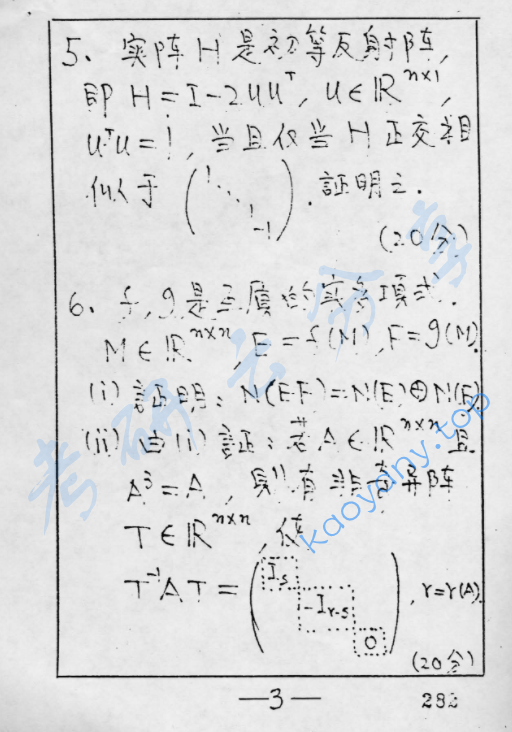 5、实阵H是初等反射阵,
即 H=I-2uuᵀ, u∈ℝⁿˣ¹,
uᵀu=1, 当且仅当H正交相
似于 (1 ⋱ 1 -1). 証明之.
(20分)
6、f,g是互质的实多項式.
M∈ℝⁿˣⁿ, E=f(M), F=g(M).
(i) 証明: N(EF)=N(E)⊕N(F)
(ii) 由(i)証: 若A∈ℝⁿˣⁿ且
A³=A, 则有非奇异阵
T∈ℝⁿˣⁿ, 使
T⁻¹AT= (I_s -I_{r-s} 0), r=r(A).
(20分)
—3—
282
考研云分享
kaoyany.top